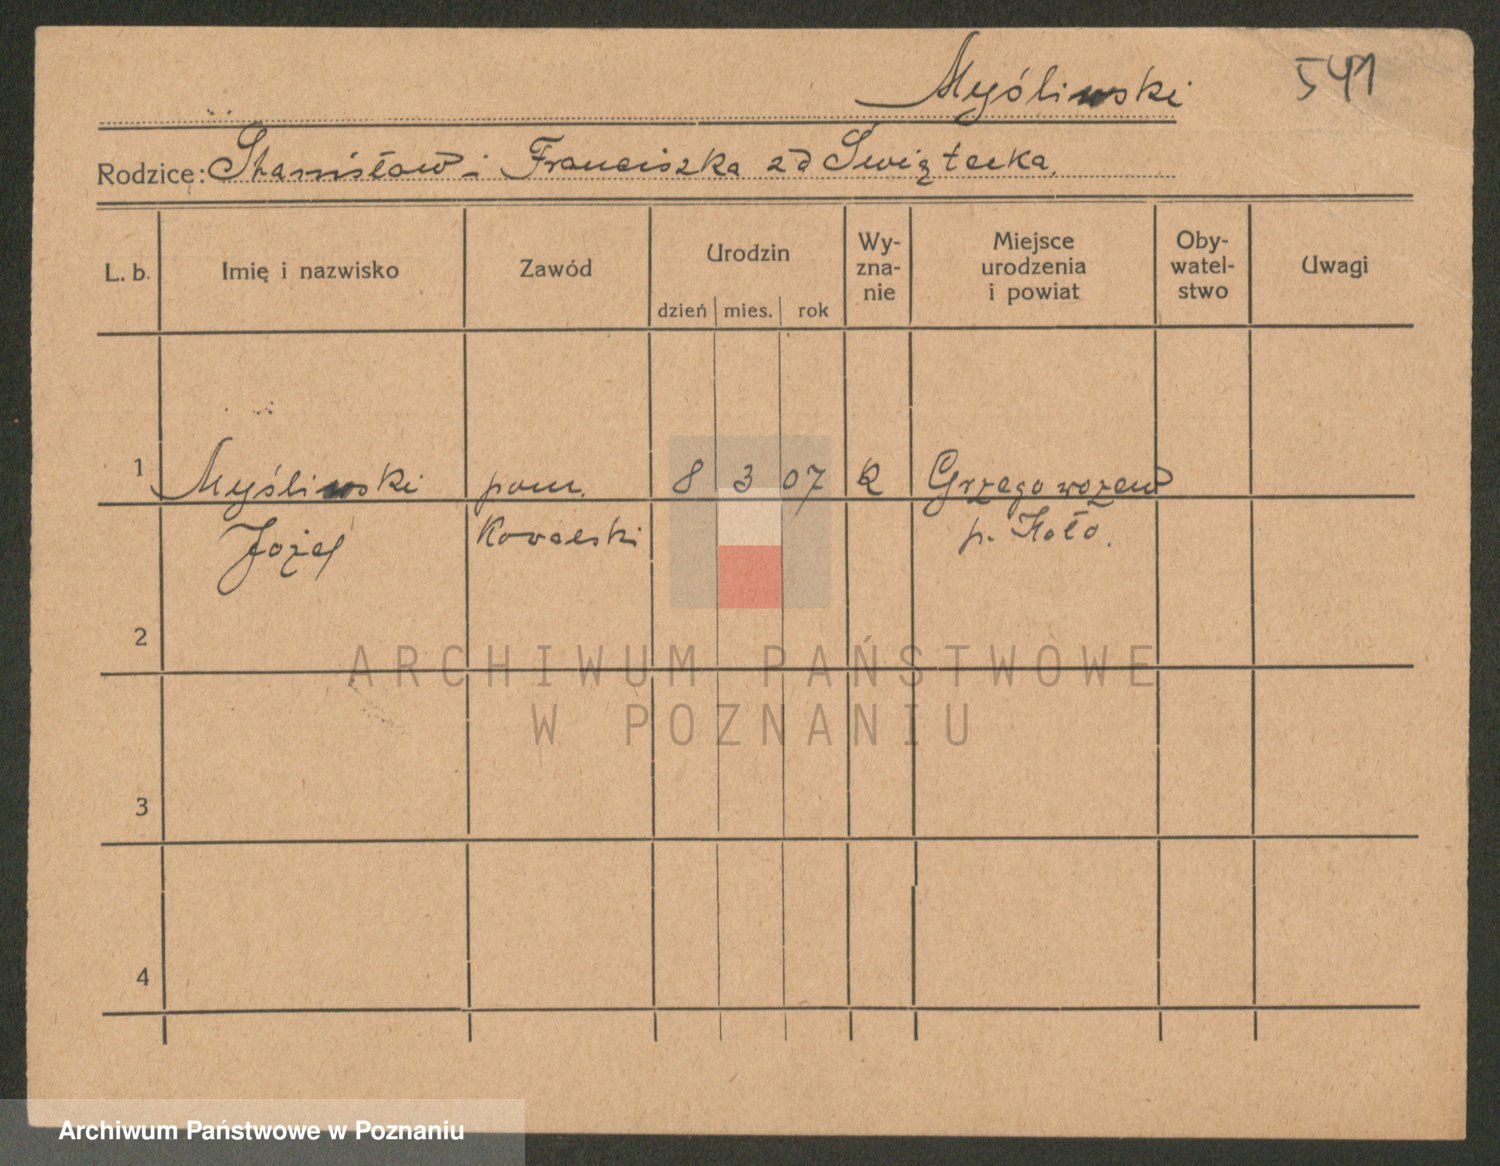 Myśliwski 541
Rodzice: Stanisław i Franciszka zd Swiątecka
L. b. Imię i nazwisko Zawód Urodzin dzień mies. rok Wy-zna-nie Miejsce urodzenia i powiat Oby-watel-stwo Uwagi
1 Myśliwski pom. 8 3 07 k
Józef Kowalski p. Koło.
2
3
4
ARCHIWUM PAŃSTWOWE
W POZNANIU
Archiwum Państwowe w Poznaniu